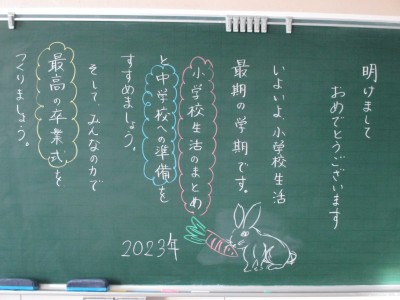 明けまして
おめでとうございます
いよいよ、小学校生活
最期の学期です。
小学校生活のまとめ
と中学校への準備を
すすめましょう。
そして、みんなの力で
最高の卒業式を
つくりましょう。
2023年